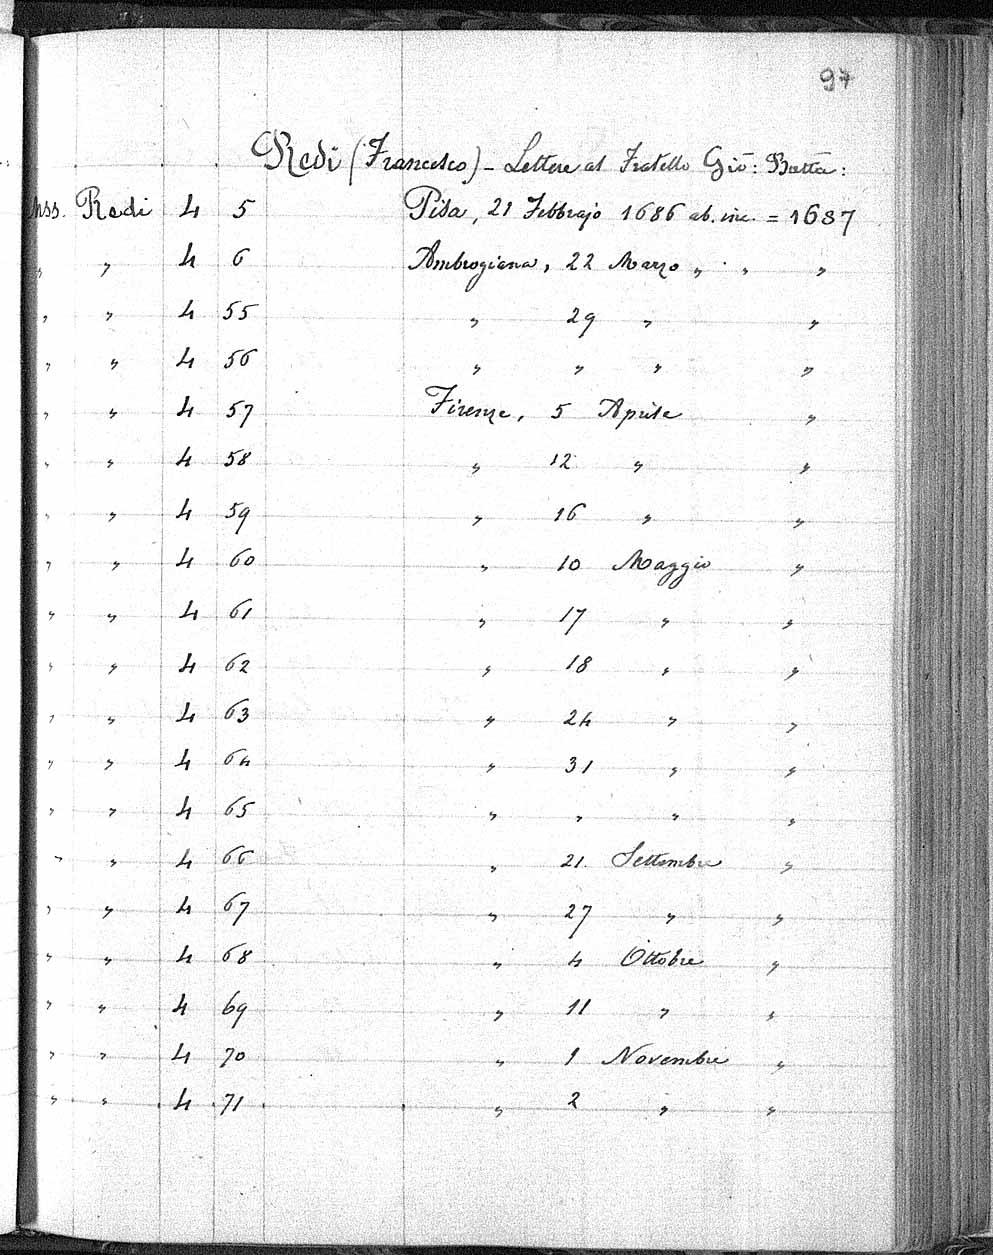 97
Redi (Francesco) - Lettere al Fratello Gio: Batta:
Mss. Redi 4 5 Pisa, 21 Febbrajo 1686 ab. inc. = 1687
„ „ 4 6 Ambrogiana, 22 Marzo „ „ „
„ „ 4 55 „ 29 „ „
„ „ 4 56 „ „ „ „
„ „ 4 57 Firenze, 5 Aprile „
„ „ 4 58 „ 12 „ „
„ „ 4 59 „ 16 „ „
„ „ 4 60 „ 10 Maggio „
„ „ 4 61 „ 17 „ „
„ „ 4 62 „ 18 „ „
„ „ 4 63 „ 24 „ „
„ „ 4 64 „ 31 „ „
„ „ 4 65 „ „ „ „
„ „ 4 66 „ 21 Settembre „
„ „ 4 67 „ 27 „ „
„ „ 4 68 „ 4 Ottobre „
„ „ 4 69 „ 11 „ „
„ „ 4 70 „ 1 Novembre „
„ „ 4 71 „ 2 „ „